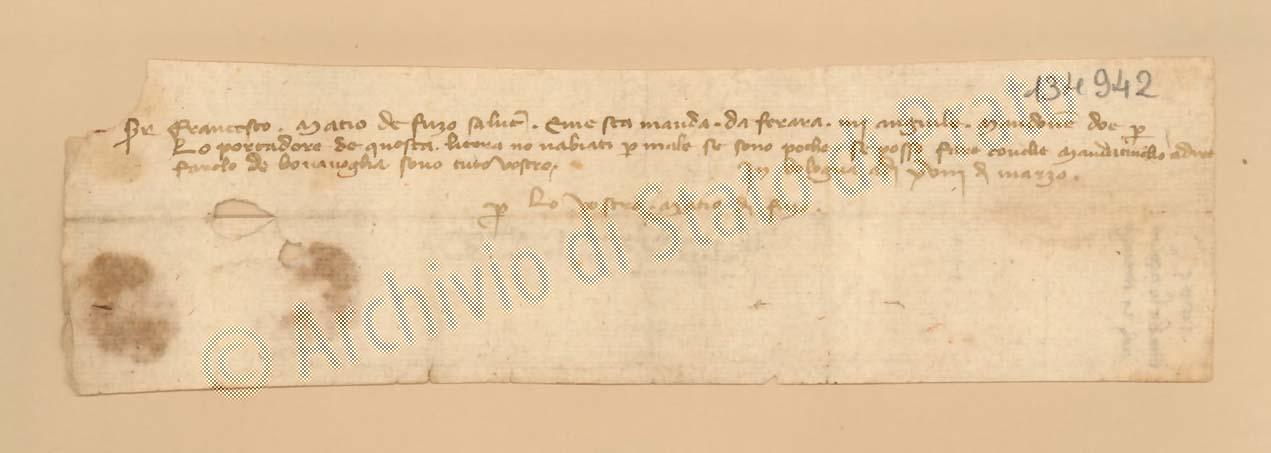 134942
Francesco . Matio de fuzo salut . E me sta manda . da ferara . iiij anguile . Mandove doe p
Lo portadore de questa . litera no nabiati p male se sono poche se posso fare covelle
farolo de bonavoglia sono tuto vostro
In bologna adi xviiij d marzo .
p Lo vostro . Matio d fuzo .
© Archivio di Stato di Prato